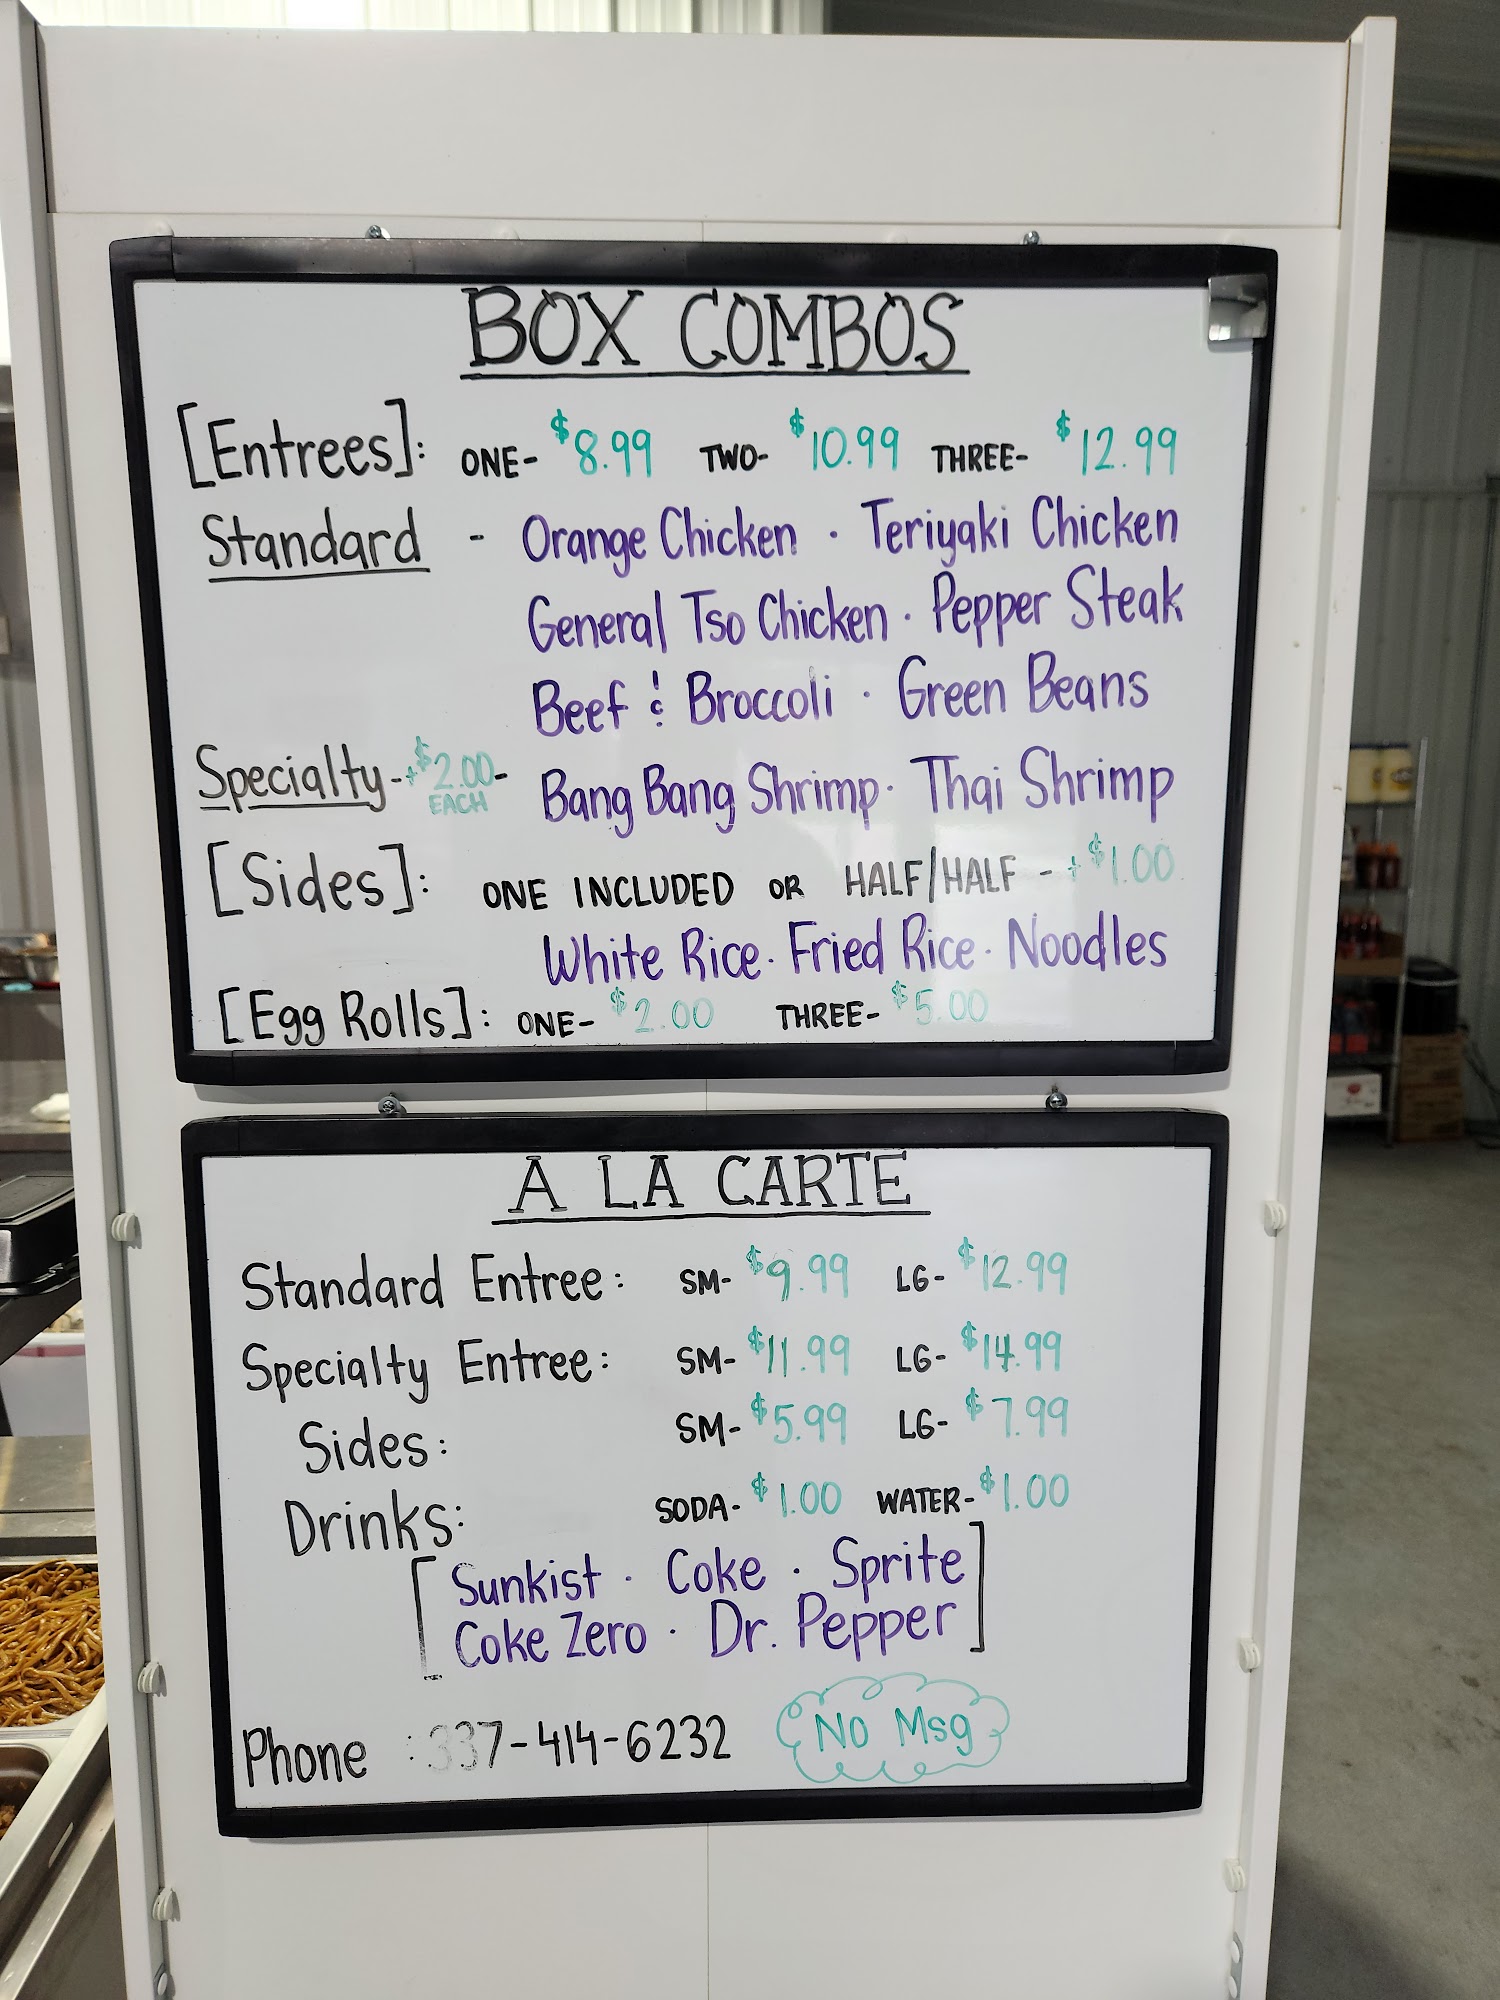 BOX COMBOS
[Entrees]: ONE- $8.99 TWO- $10.99 THREE- $12.99
Standard - Orange Chicken · Teriyaki Chicken
General Tso Chicken · Pepper Steak
Beef & Broccoli · Green Beans
Specialty - +$2.00 EACH - Bang Bang Shrimp · Thai Shrimp
[Sides]: ONE INCLUDED OR HALF/HALF - +$1.00
White Rice · Fried Rice · Noodles
[Egg Rolls]: ONE- $2.00 THREE- $5.00
A LA CARTE
Standard Entree: SM- $9.99 LG- $12.99
Specialty Entree: SM- $11.99 LG- $14.99
Sides: SM- $5.99 LG- $7.99
Drinks: SODA- $1.00 WATER- $1.00
[Sunkist · Coke · Sprite
Coke Zero · Dr. Pepper]
Phone : 337-414-6232 No Msg